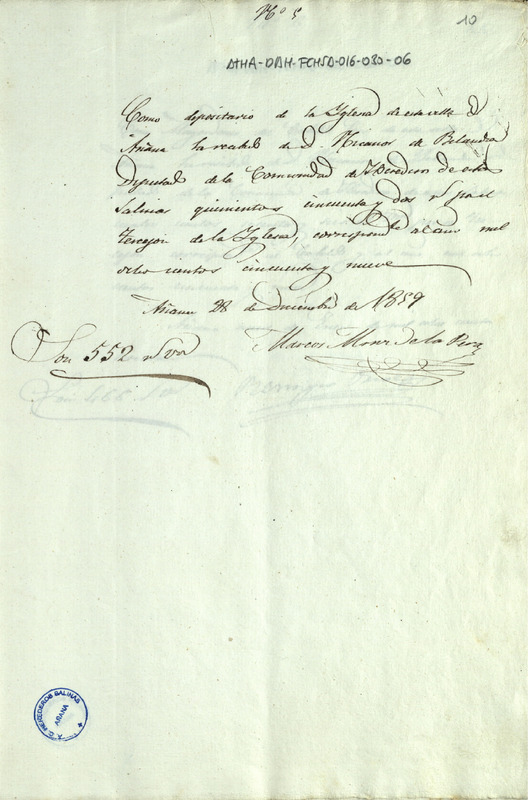 Nº 5
10
ATHA-DAH-FCHSA-016-030-06
Como depositario de la Iglesia de esta villa de
Añana he recibido de D. Nicanor de
Diputado de la Comunidad de Herederos de estas
Salinas quinientos cincuenta y dos rs para el
de la Iglesia, correspondte al año mil
ocho cientos cincuenta y nueve
Añana 28 de Diciembre de 1859
Son 552 rs von
Marcos de la
HEREDEROS SALINAS
AÑANA